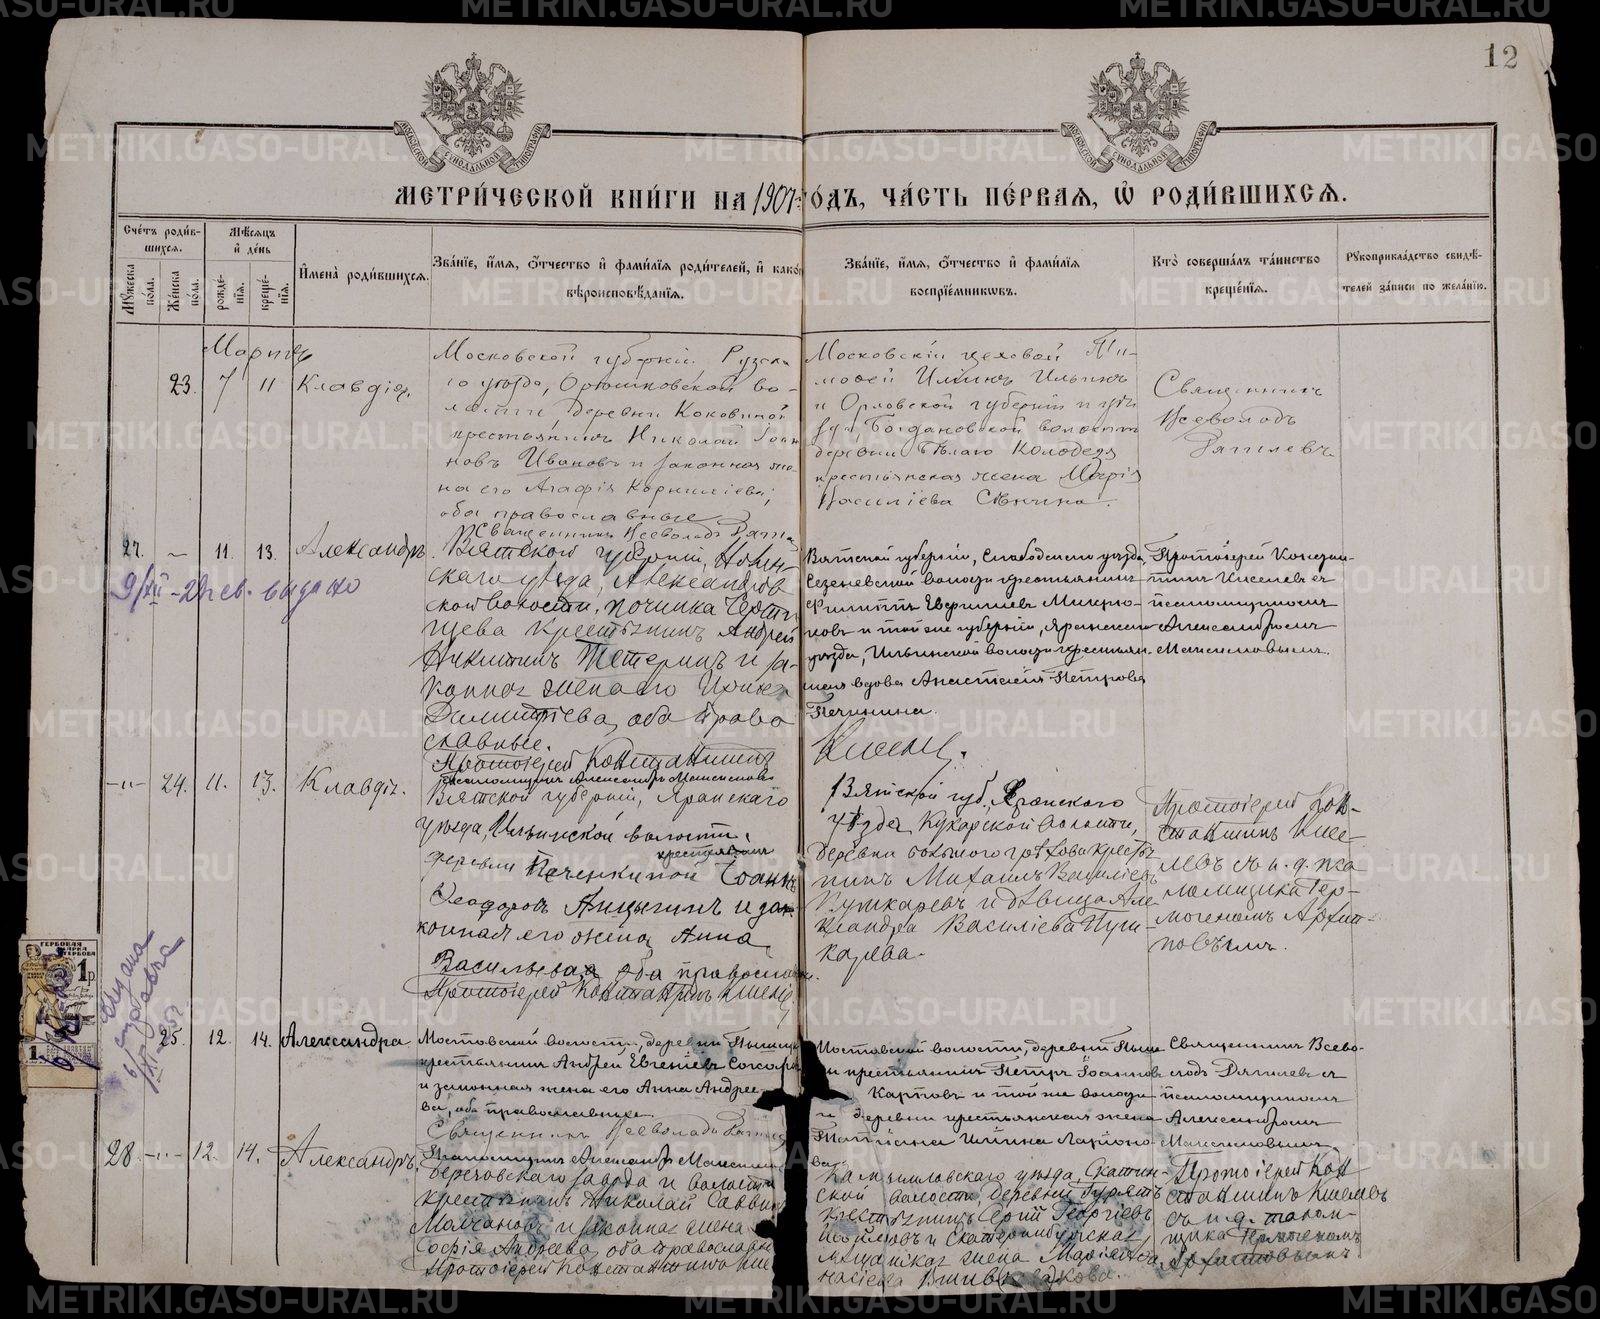 12
МЕТРИ́ЧЕСКОЙ КНИ́ГИ НА 1907 ГО́ДЪ, ЧА́СТЬ ПЕ́РВАЯ, Ѡ РОДИ́ВШИХСЯ.
Сче́тъ роди́вшихся.
Мꙋ́жеска по́ла.
Же́нска по́ла.
Мѣ́сяцъ и де́нь
рожде́нїя.
креще́нїя.
И҆мена̀ роди́вшихся.
Зва́нїе, и҆́мя, ѻ҆́тчество и҆ фами́лїя роди́телей, и҆ како́го
вѣроисповѣ́данїя.
Зва́нїе, и҆́мя, ѻ҆́тчество и҆ фами́лїя
воспрїе́мникѡвъ.
Кто̀ соверша́лъ та́инство
креще́нїя.
Рꙋкоприкла́дство свидѣ́-
телей за́писи по жела́нїю.
Мартъ
23. 7 11 Клавдія.
Московской губерніи Рузска
го уѣзда, Орѣшковской во-
лости, деревни Коковиной
крестьянинъ Николай Іоан
новъ Ивановъ и законная же-
на его Агафія Корнилiева,
оба православные
Священникъ Всеволодъ
Московскій цеховой Ти-
мофей Ильинъ Ильинъ
и Орловской губерніи и уѣз
да, Богдановской волости
деревни Бѣлаго Колодезя
крестьянская жена Марія
Василіева Сѣнчина.
Священникъ
Всеволодъ
27. – 11. 13. Александръ.
9/XII – 29 св. выдано
Вятской губерніи, Нолин-
скаго уѣзда, Александров
ской волости, починка
крестьянинъ Андрей
Никитинъ Тетеринъ и за-
конная жена его Ирина
Димитріева, оба право
славные.
Протоіерей Константинъ
Псаломщикъ Александръ Максимовъ
Вятской губерніи, Слободского уѣзда,
Сезеневской волости крестьянинъ
Филиппъ Микрю-
ковъ и той же губерніи, Яранскаго
уѣзда, Ильинской волости крестьян-
ская вдова Анастасія Петрова
Печинина.
Протоіерей Констан-
тинъ Киселевъ съ
псаломщикомъ
Александромъ
Максимовымъ.
–"– 24. 11. 13. Клавдія.
Вятской губерніи, Яранскаго
уѣзда, Ильинской волости,
деревни Печенкиной крестьянинъ Іоаннъ
Ѳеодоровъ и за-
конная его жена Анна
Васильева, оба православн.
Протоіерей Константинъ Кисел
Вятской губ., Яранского
уѣзда, Кукарской волости,
деревни крестья-
нинъ Михаилъ Василіевъ
Пушкаревъ и дѣвица Але
ксандра Василіева Пуш-
карева.
Протоіерей Кон-
стантинъ Кисе-
левъ съ и. д. пса
ломщика Гер-
могеномъ Архип-
повымъ.
ГЕРБОВАЯ
МАРКА
1р
Выдана
справка
25. 12. 14. Александра
Мостовской волости, деревни Пышмы
крестьянинъ Андрей Евгеніевъ
и законная жена его Анна Андрее-
ва, оба православные.
Священникъ Всеволодъ
Псаломщикъ Александръ Максимовъ
Мостовской волости, деревни Пыш
мы крестьянинъ Петръ Іоанновъ
Карповъ и той же волости
и деревни крестьянская жена
Татіана Ильина Ларіоно-
ва.
Священникъ Всево-
лодъ съ
псаломщикомъ
Александромъ
Максимовымъ
28. –"– 12. 14. Александръ.
Березовскаго завода и волости
крестьянинъ Николай Саввинъ
Молчановъ и законная жена
Софія Андреева, оба православн
Протоіерей Константинъ Кисе
Камышловскаго уѣзда, Скатин-
ской волости деревни
крестьянинъ Георгіевъ
и Екатеринбургская
мѣщанская жена
Протоіерей Кон
стантинъ Киселевъ
съ и. д. псалом-
щика Гермогеномъ
Архиповымъ
METRIKI.GASO-URAL.RU